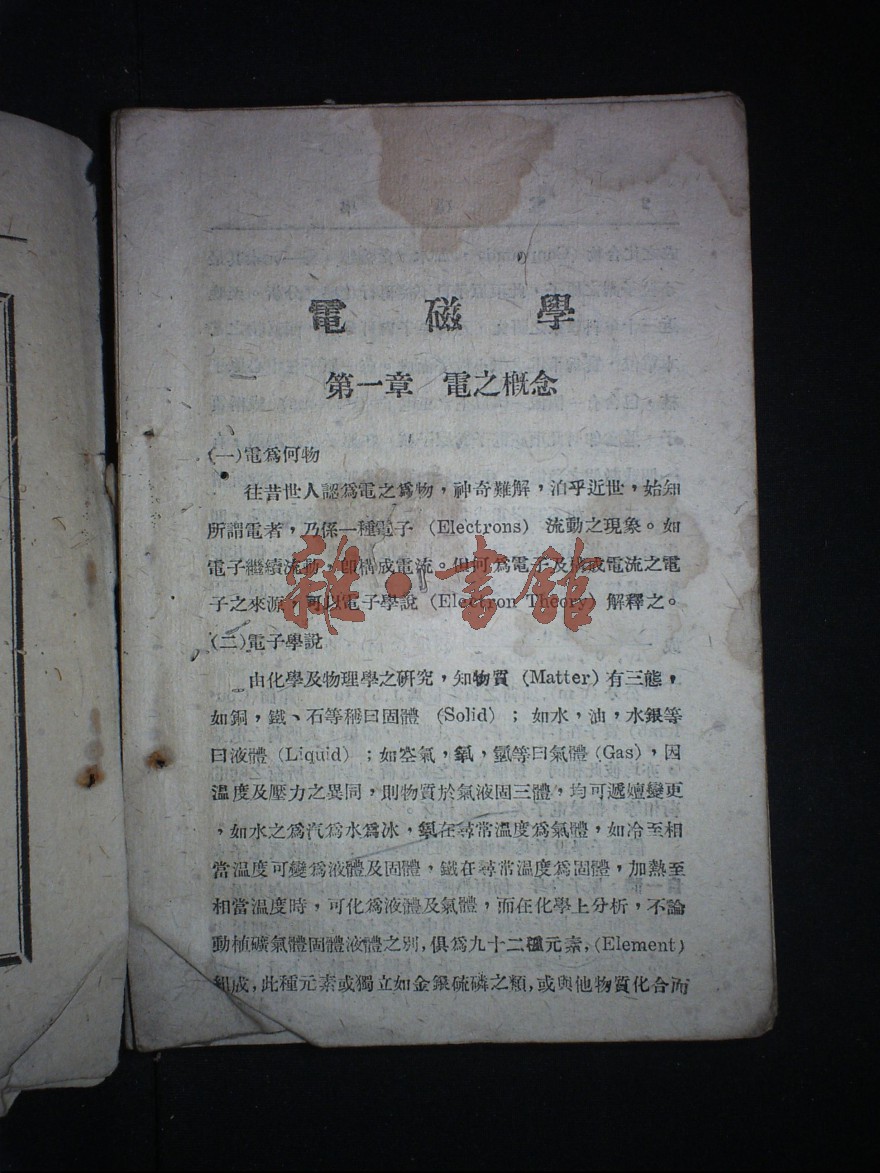 電磁學
第一章 電之概念
(一)電爲何物
往昔世人認爲電之爲物，神奇難解，泊乎近世，始知
所謂電者，乃係一種電子 (Electrons) 流動之現象。如
電子繼續流動，卽構成電流。但何爲電子及構成電流之電
子之來源，可以電子學說 (Electron Theory) 解釋之。
(二)電子學說
由化學及物理學之硏究，知物質 (Matter) 有三態，
如銅，鐵、石等稱曰固體 (Solid) ；如水，油，水銀等
曰液體 (Liquid) ；如空氣，氧，氫等曰氣體 (Gas)，因
溫度及壓力之異同，則物質於氣液固三體，均可遞嬗變更
，如水之爲汽爲水爲冰，氧在尋常溫度爲氣體，如冷至相
當溫度可變爲液體及固體，鐵在尋常溫度爲固體，加熱至
相當溫度時，可化爲液體及氣體，而在化學上分析，不論
動植礦氣體固體液體之別，俱爲九十二種元素，(Element)
組成，此種元素或獨立如金銀硫磷之類，或與他物質化合而
雜·書館